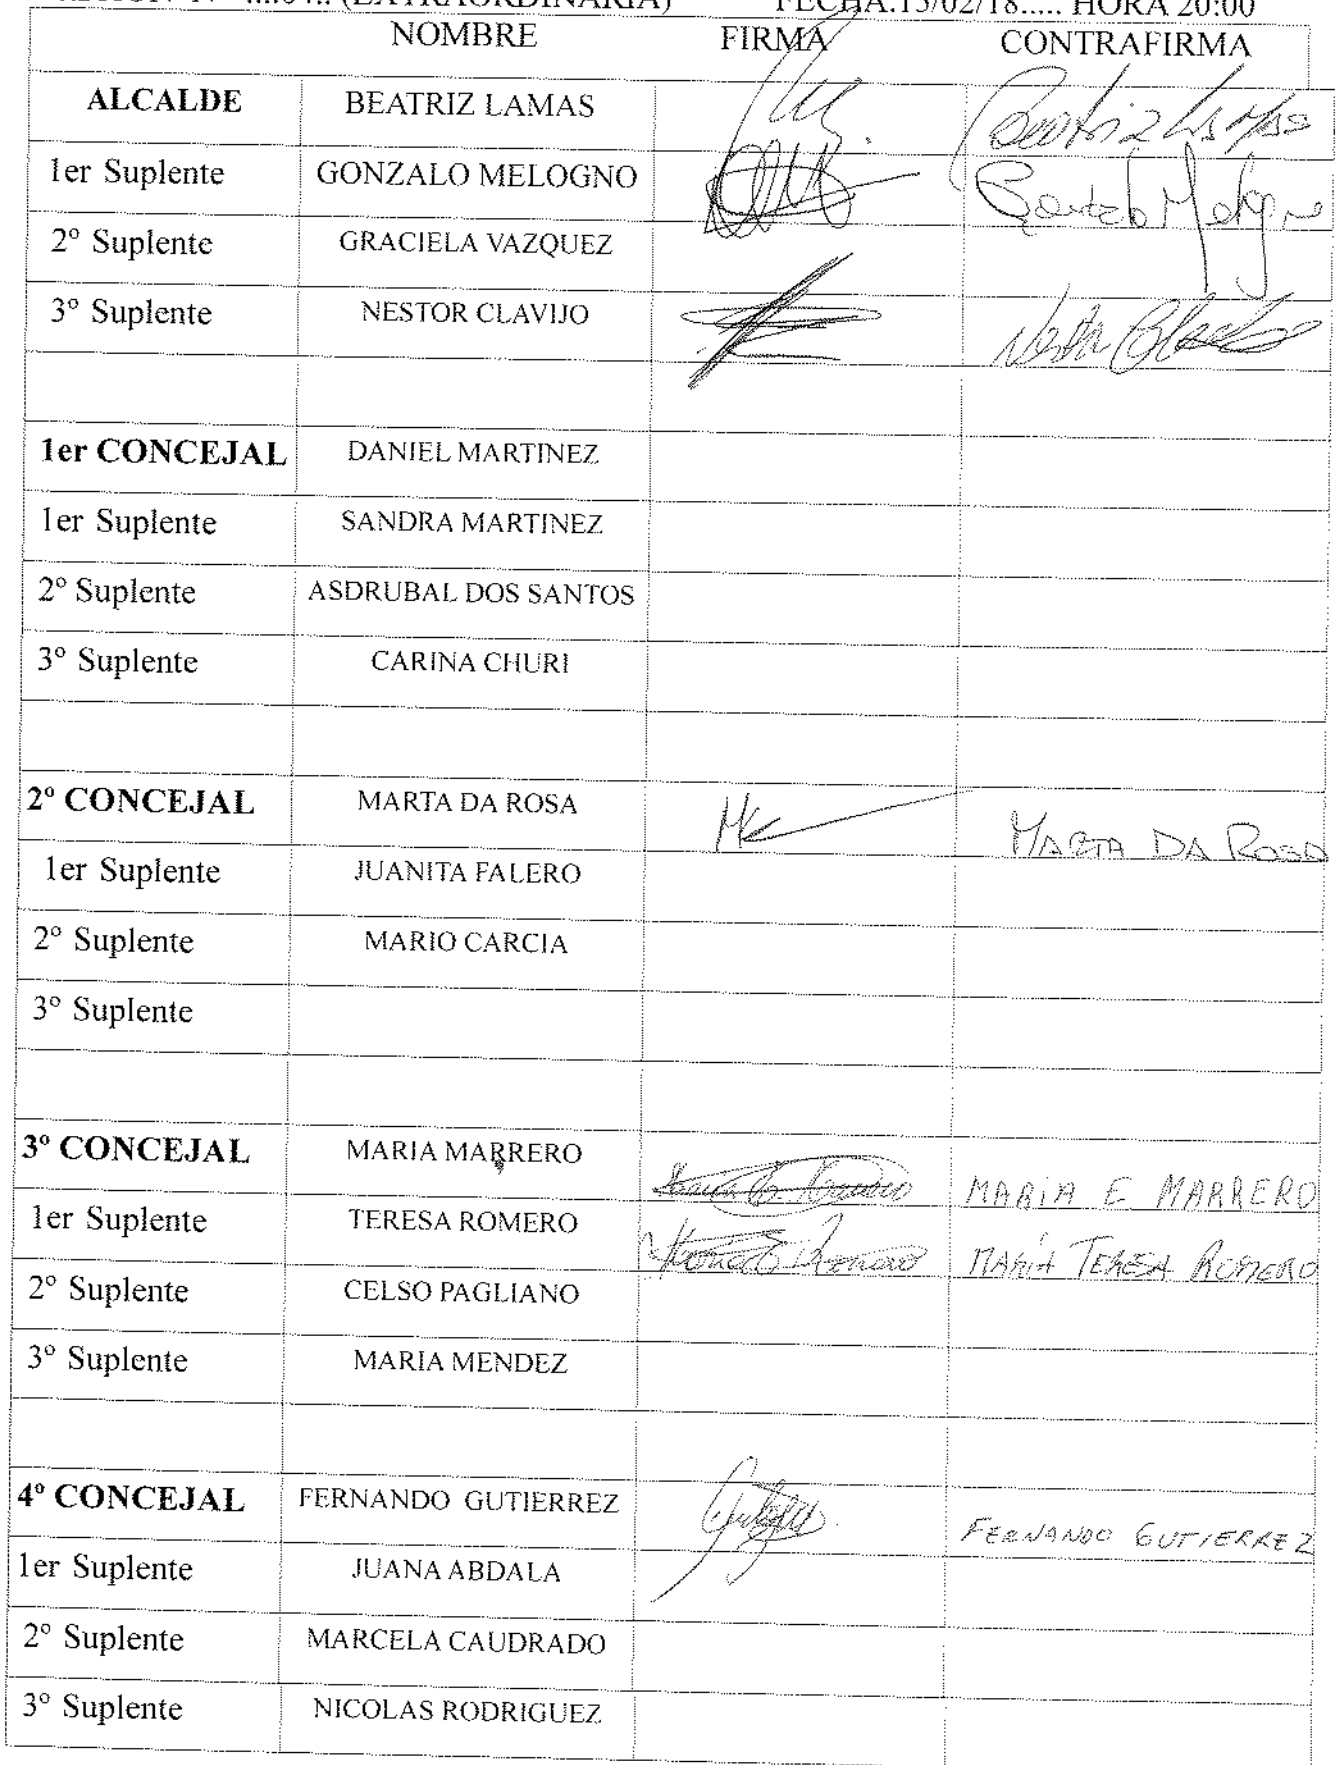 (EXTRAORDINARIA) FECHA:15/02/18..... HORA 20:00
NOMBRE FIRMA CONTRAFIRMA
ALCALDE BEATRIZ LAMAS Beatriz Lamas
1er Suplente GONZALO MELOGNO Gonzalo Melogno
2º Suplente GRACIELA VAZQUEZ
3º Suplente NESTOR CLAVIJO Nestor Clavijo
1er CONCEJAL DANIEL MARTINEZ
1er Suplente SANDRA MARTINEZ
2º Suplente ASDRUBAL DOS SANTOS
3º Suplente CARINA CHURI
2º CONCEJAL MARTA DA ROSA MARTA DA ROSA
1er Suplente JUANITA FALERO
2º Suplente MARIO CARCIA
3º Suplente
3º CONCEJAL MARIA MARRERO MARIA E MARRERO
1er Suplente TERESA ROMERO MARÍA TERESA ROMERO
2º Suplente CELSO PAGLIANO
3º Suplente MARIA MENDEZ
4º CONCEJAL FERNANDO GUTIERREZ FERNANDO GUTIERREZ
1er Suplente JUANA ABDALA
2º Suplente MARCELA CAUDRADO
3º Suplente NICOLAS RODRIGUEZ